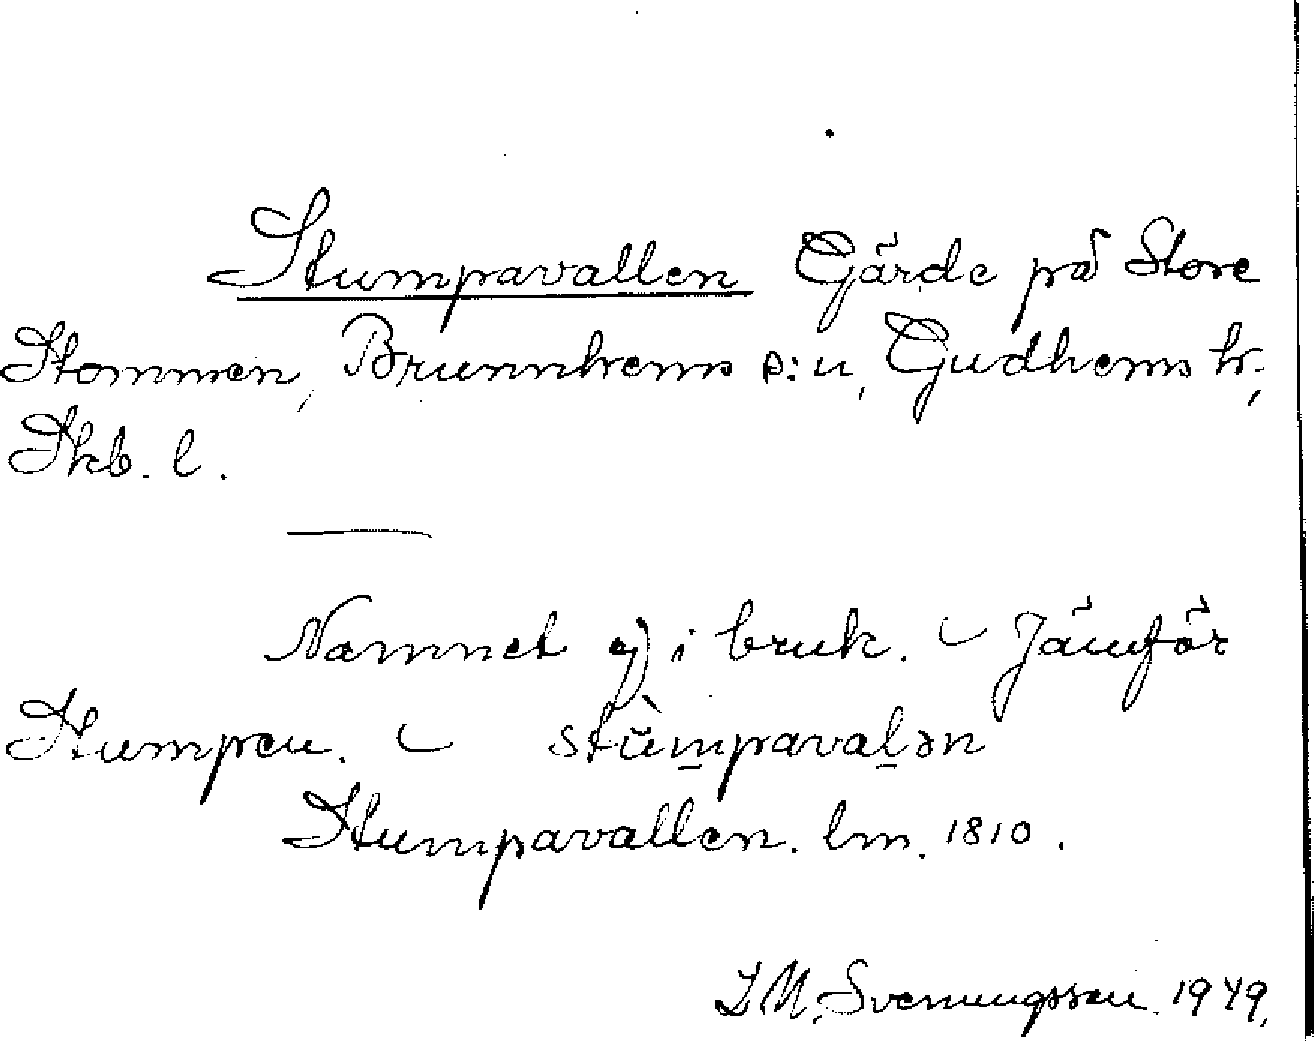 Stumpavallen Gärde på Store
Stommen, Brunnhems s:n, Gudhems hr,
Skb. l.
Namnet ej i bruk. – Jämför
Stumpen. – stùmpavaḻən
Stumpavallen. lm. 1810.
J. M. Svenungsson. 1949.